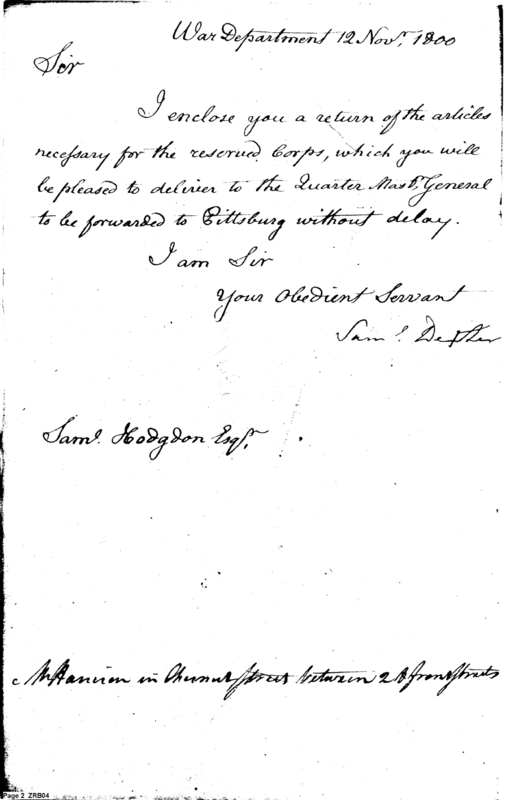 War Department 12 Novr. 1800
Sir
I enclose you a return of the articles
necessary for the reserved Corps, which you will
be pleased to deliver to the Quarter Mastr. General
to be forwarded to Pittsburg without delay.
I am Sir
Your Obedient Servant
Saml. Dexter
Saml. Hodgdon Esqr.
Mr Harrison in Chesnut Street between 2 & front Streets
Page 2 ZRB04